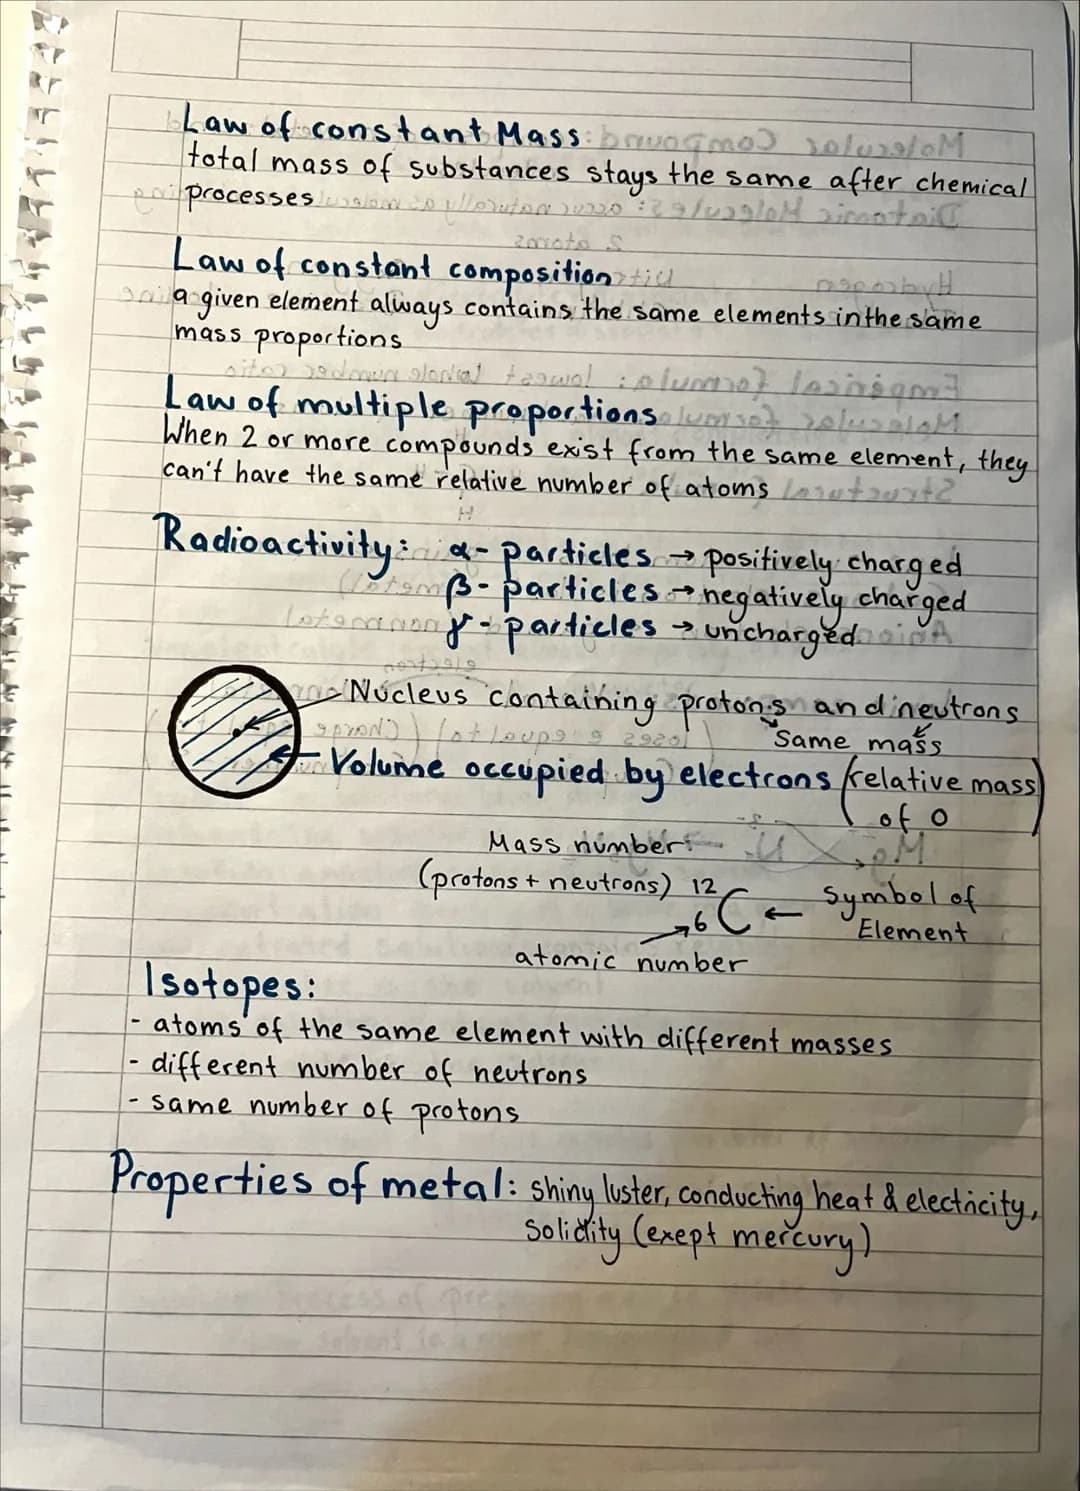 Law of constant Mass:
total mass of substances stays the same after chemical
processes
Law of constant composition
a given element always contains the same elements in the same
mass proportions
Law of multiple proportions
When 2 or more compounds exist from the same element, they
can't have the same relative number of atoms
Radioactivity: α- particles → positively charged
β- particles → negatively charged
γ- particles → uncharged
Nucleus containing protons and neutrons
Same mass
Volume occupied by electrons (relative mass
of 0)
Mass number:
(protons + neutrons) 12
6 C ← Symbol of
Element
atomic number
Isotopes:
- atoms of the same element with different masses
- different number of neutrons
- same number of protons
Properties of metal: shiny luster, conducting heat & electricity,
Solidity (exept mercury)